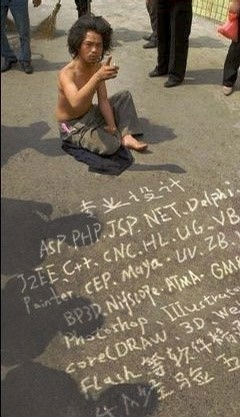 专业设计
ASP.PHP.JSP.NET.Delphi
J2EE.C++.CNC.HL.UG.VB
Painter.CEP.Maya.UV.ZB.
BP3D.Nifscope.ATMA.GM
Photoshop.Illustrator
CorelDRAW.3D.We
Flash 等软件精